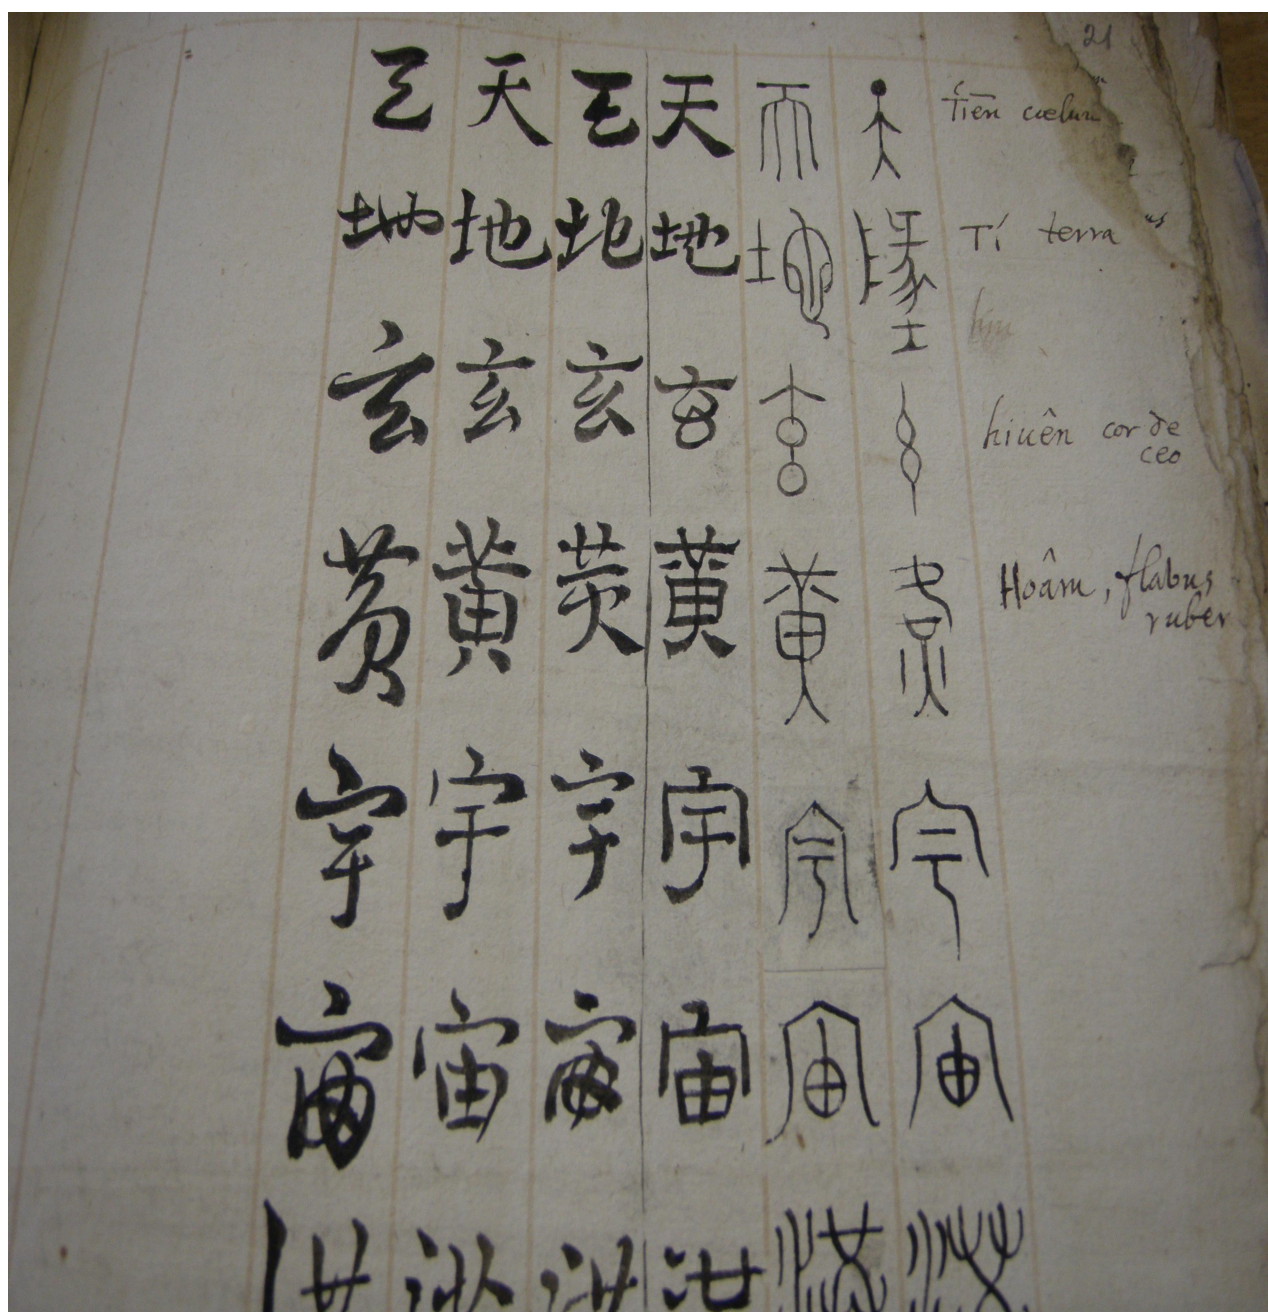 21
天 天 天 天 天 天 tiēn cœlum
地 地 地 地 地 墬 Tí terra
玄 玄 玄 玄 玄 玄 hiuên cor de
ceo
黄 黄 黄 黄 黄 黄 Hoâm, flabus
ruber
宇 宇 宇 宇 宇 宇
宙 宙 宙 宙 宙 宙
洪 洪 洪 洪 洪 洪